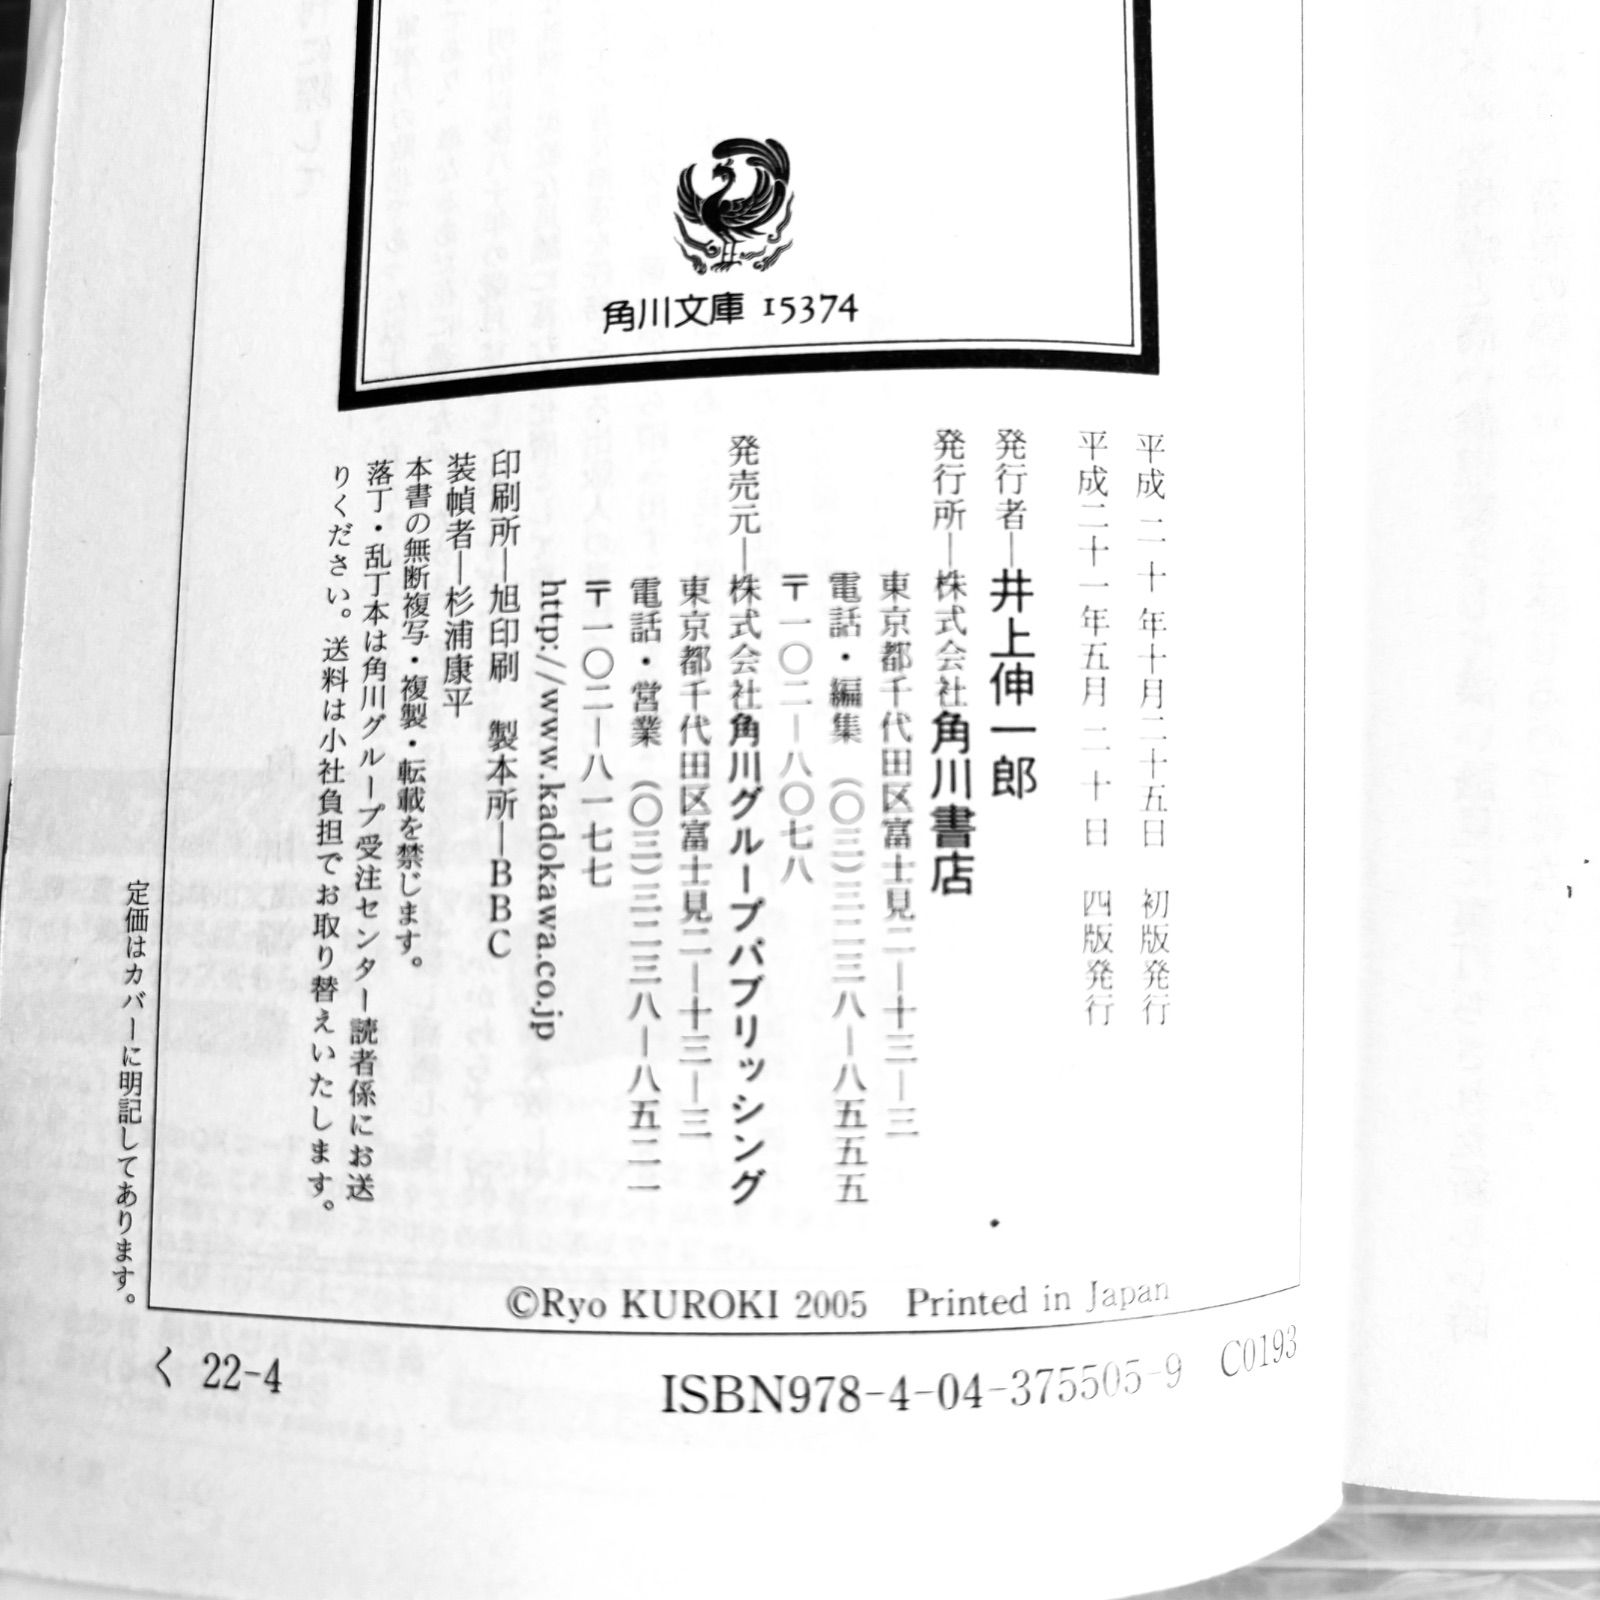 角川文庫 15374
平成二十年十月二十五日 初版発行
平成二十一年五月二十日 四版発行
発行者―井上伸一郎
発行所―株式会社角川書店
東京都千代田区富士見二―十三―三
電話・編集 (〇三)三二三八―八五五五
〒一〇二―八〇七八
発売元―株式会社角川グループパブリッシング
東京都千代田区富士見二―十三―三
電話・営業 (〇三)三二三八―八五二一
〒一〇二―八一七七
http://www.kadokawa.co.jp
印刷所―旭印刷 製本所―BBC
装幀者―杉浦康平
本書の無断複写・複製・転載を禁じます。
落丁・乱丁本は角川グループ受注センター読者係にお送
りください。送料は小社負担でお取り替えいたします。
定価はカバーに明記してあります。
©Ryo KUROKI 2005 Printed in Japan
く 22-4
ISBN978-4-04-375505-9 C0193